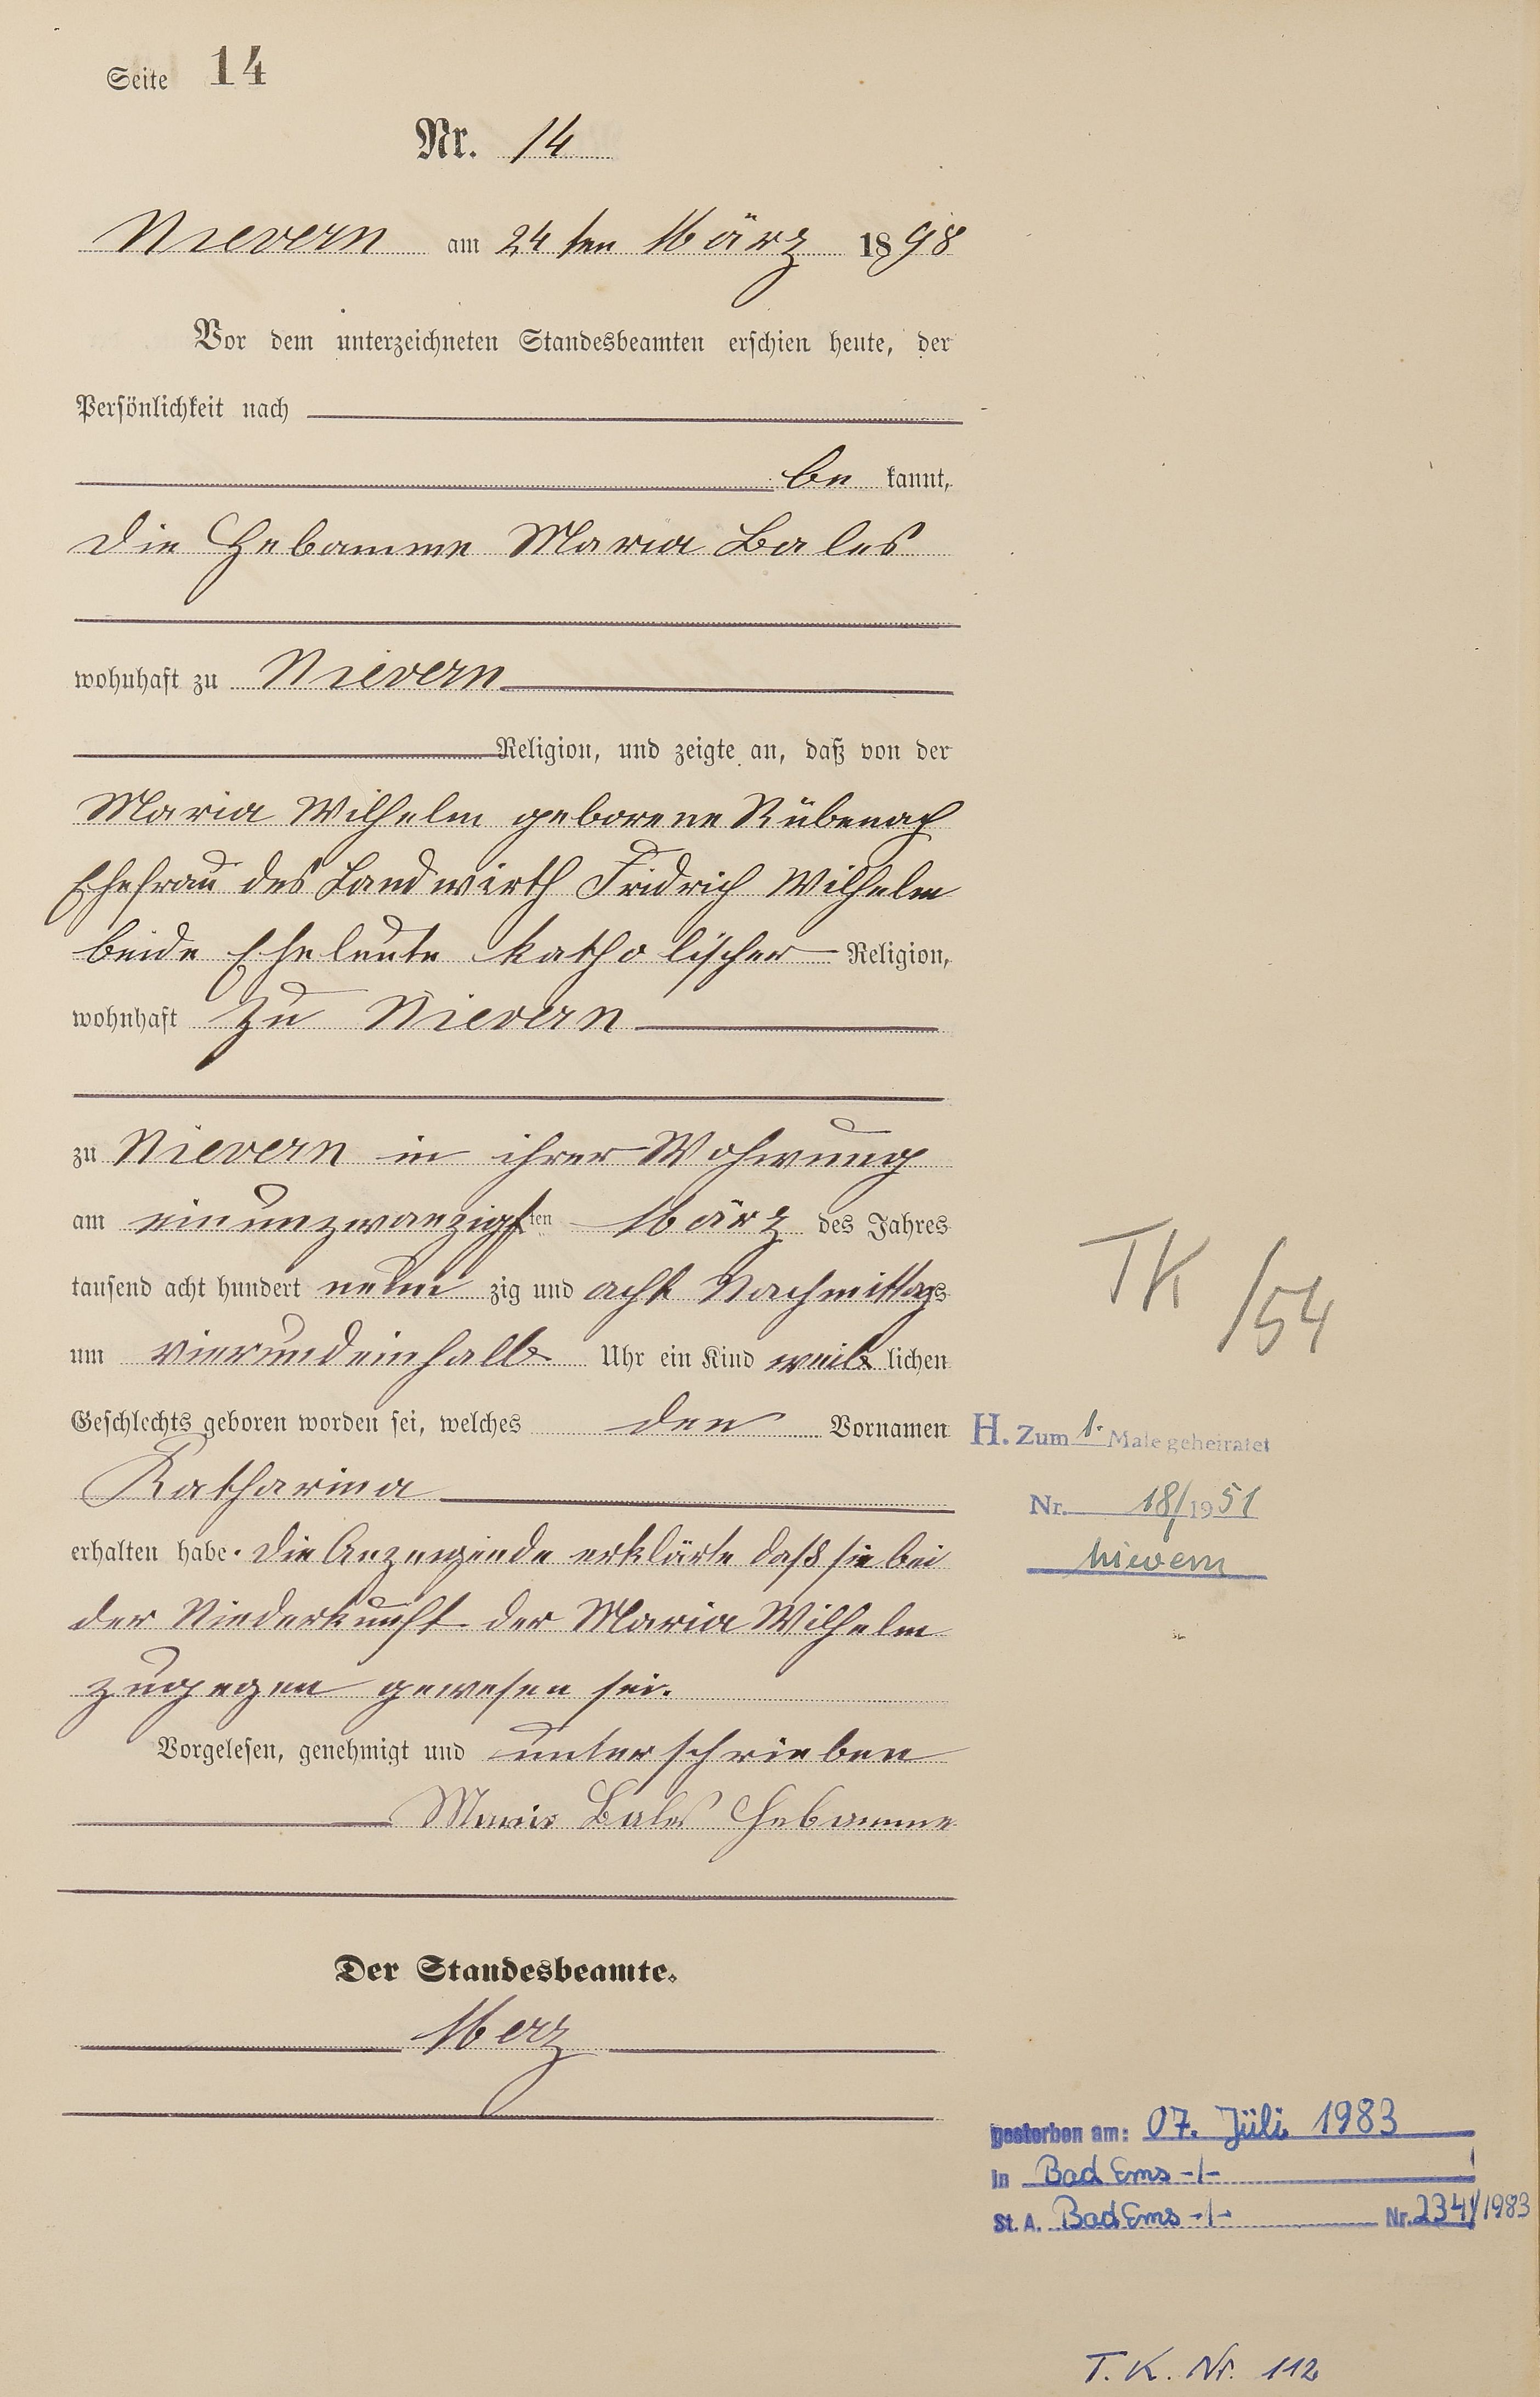 Seite 14
Nr. 14
Nievern am 24ten März 1898
Vor dem unterzeichneten Standesbeamten erschien heute, der
Persönlichkeit nach
be kannt,
die Hebamme Maria Bales
wohnhaft zu Nievern
Religion, und zeigte an, daß von der
Maria Wilhelm geborene Rübenach
Ehefrau des Landwirth Fridrich Wilhelm
beide Eheleute katholischer Religion,
wohnhaft zu Nievern
zu Nievern in ihrer Wohnung
am einunzwanzigsten März des Jahres
tausend acht hundert neun zig und acht Nachmittags
um vierundeinhalb Uhr ein Kind weib lichen
Geschlechts geboren worden sei, welches den Vornamen
Katharina
erhalten habe. Die Anzeigende erklärte daß sie bei
der Niederkunft der Maria Wilhelm
zugegen gewesen sei.
Vorgelesen, genehmigt und unterschrieben
Maria Bales Hebamme
Der Standesbeamte.
Merz
TK /54
H. Zum 1. Male geheiratet
Nr. 18/1951
Nievern
gestorben am: 07. Jüli 1983
in Bad Ems -/-
St. A. Bad Ems -/- Nr. 234/1983
T. K. Nr. 112